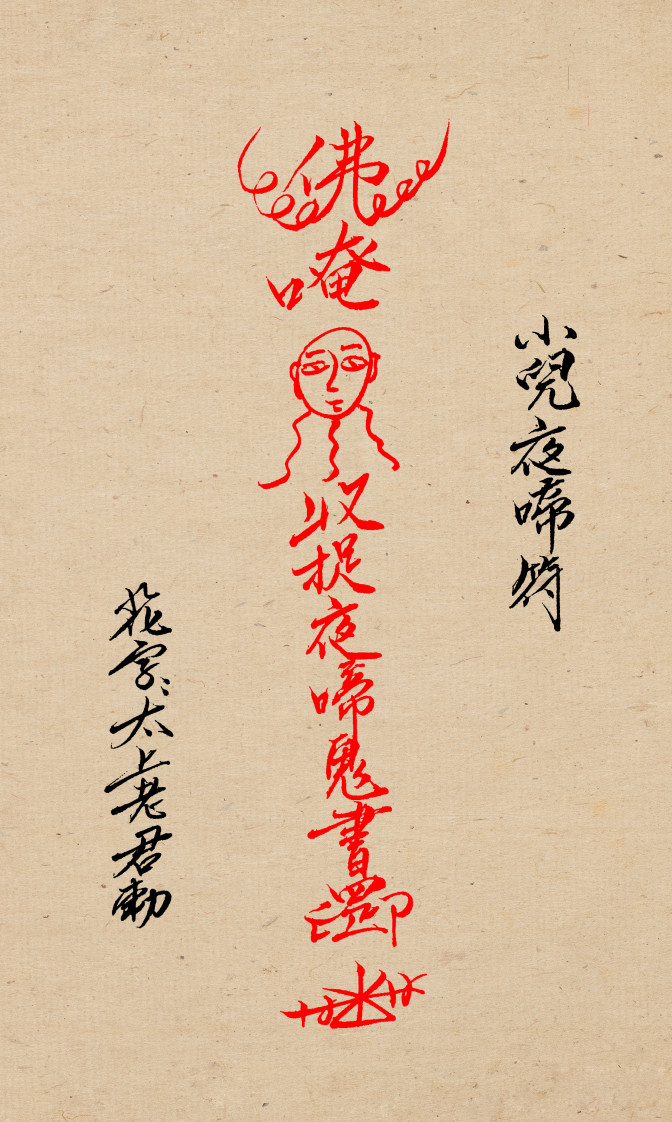 小兒夜啼符
佛
唵
收捉夜啼鬼書
花字：太上老君勅